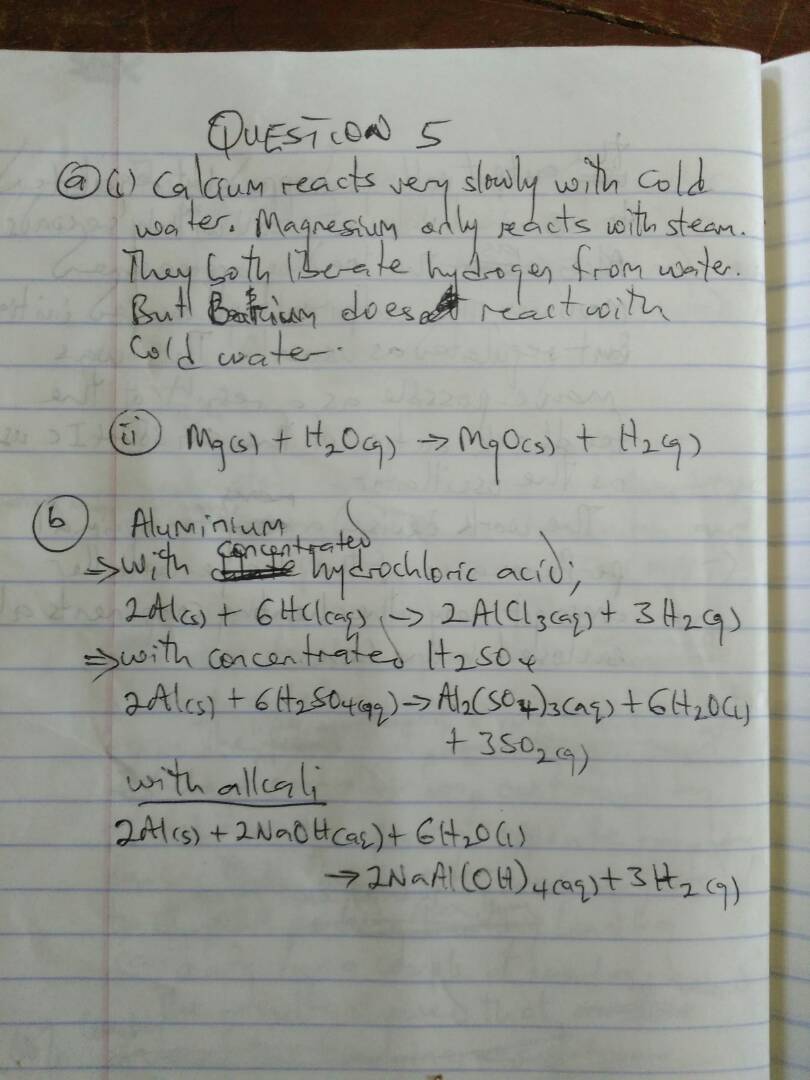 QUESTION 5
(a) (i) Calcium reacts very slowly with cold
water. Magnesium only reacts with steam.
They both liberate hydrogen from water.
But does react with
cold water.
(ii) Mg(s) + H2O(g) → MgO(s) + H2(g)
(b) Aluminium
⇒ with concentrated hydrochloric acid;
2Al(s) + 6HCl(aq) → 2AlCl3(aq) + 3H2(g)
⇒ with concentrated H2SO4
2Al(s) + 6H2SO4(aq) → Al2(SO4)3(aq) + 6H2O(l)
+ 3SO2(g)
with alkali
2Al(s) + 2NaOH(aq) + 6H2O(l)
→ 2NaAl(OH)4(aq) + 3H2(g)